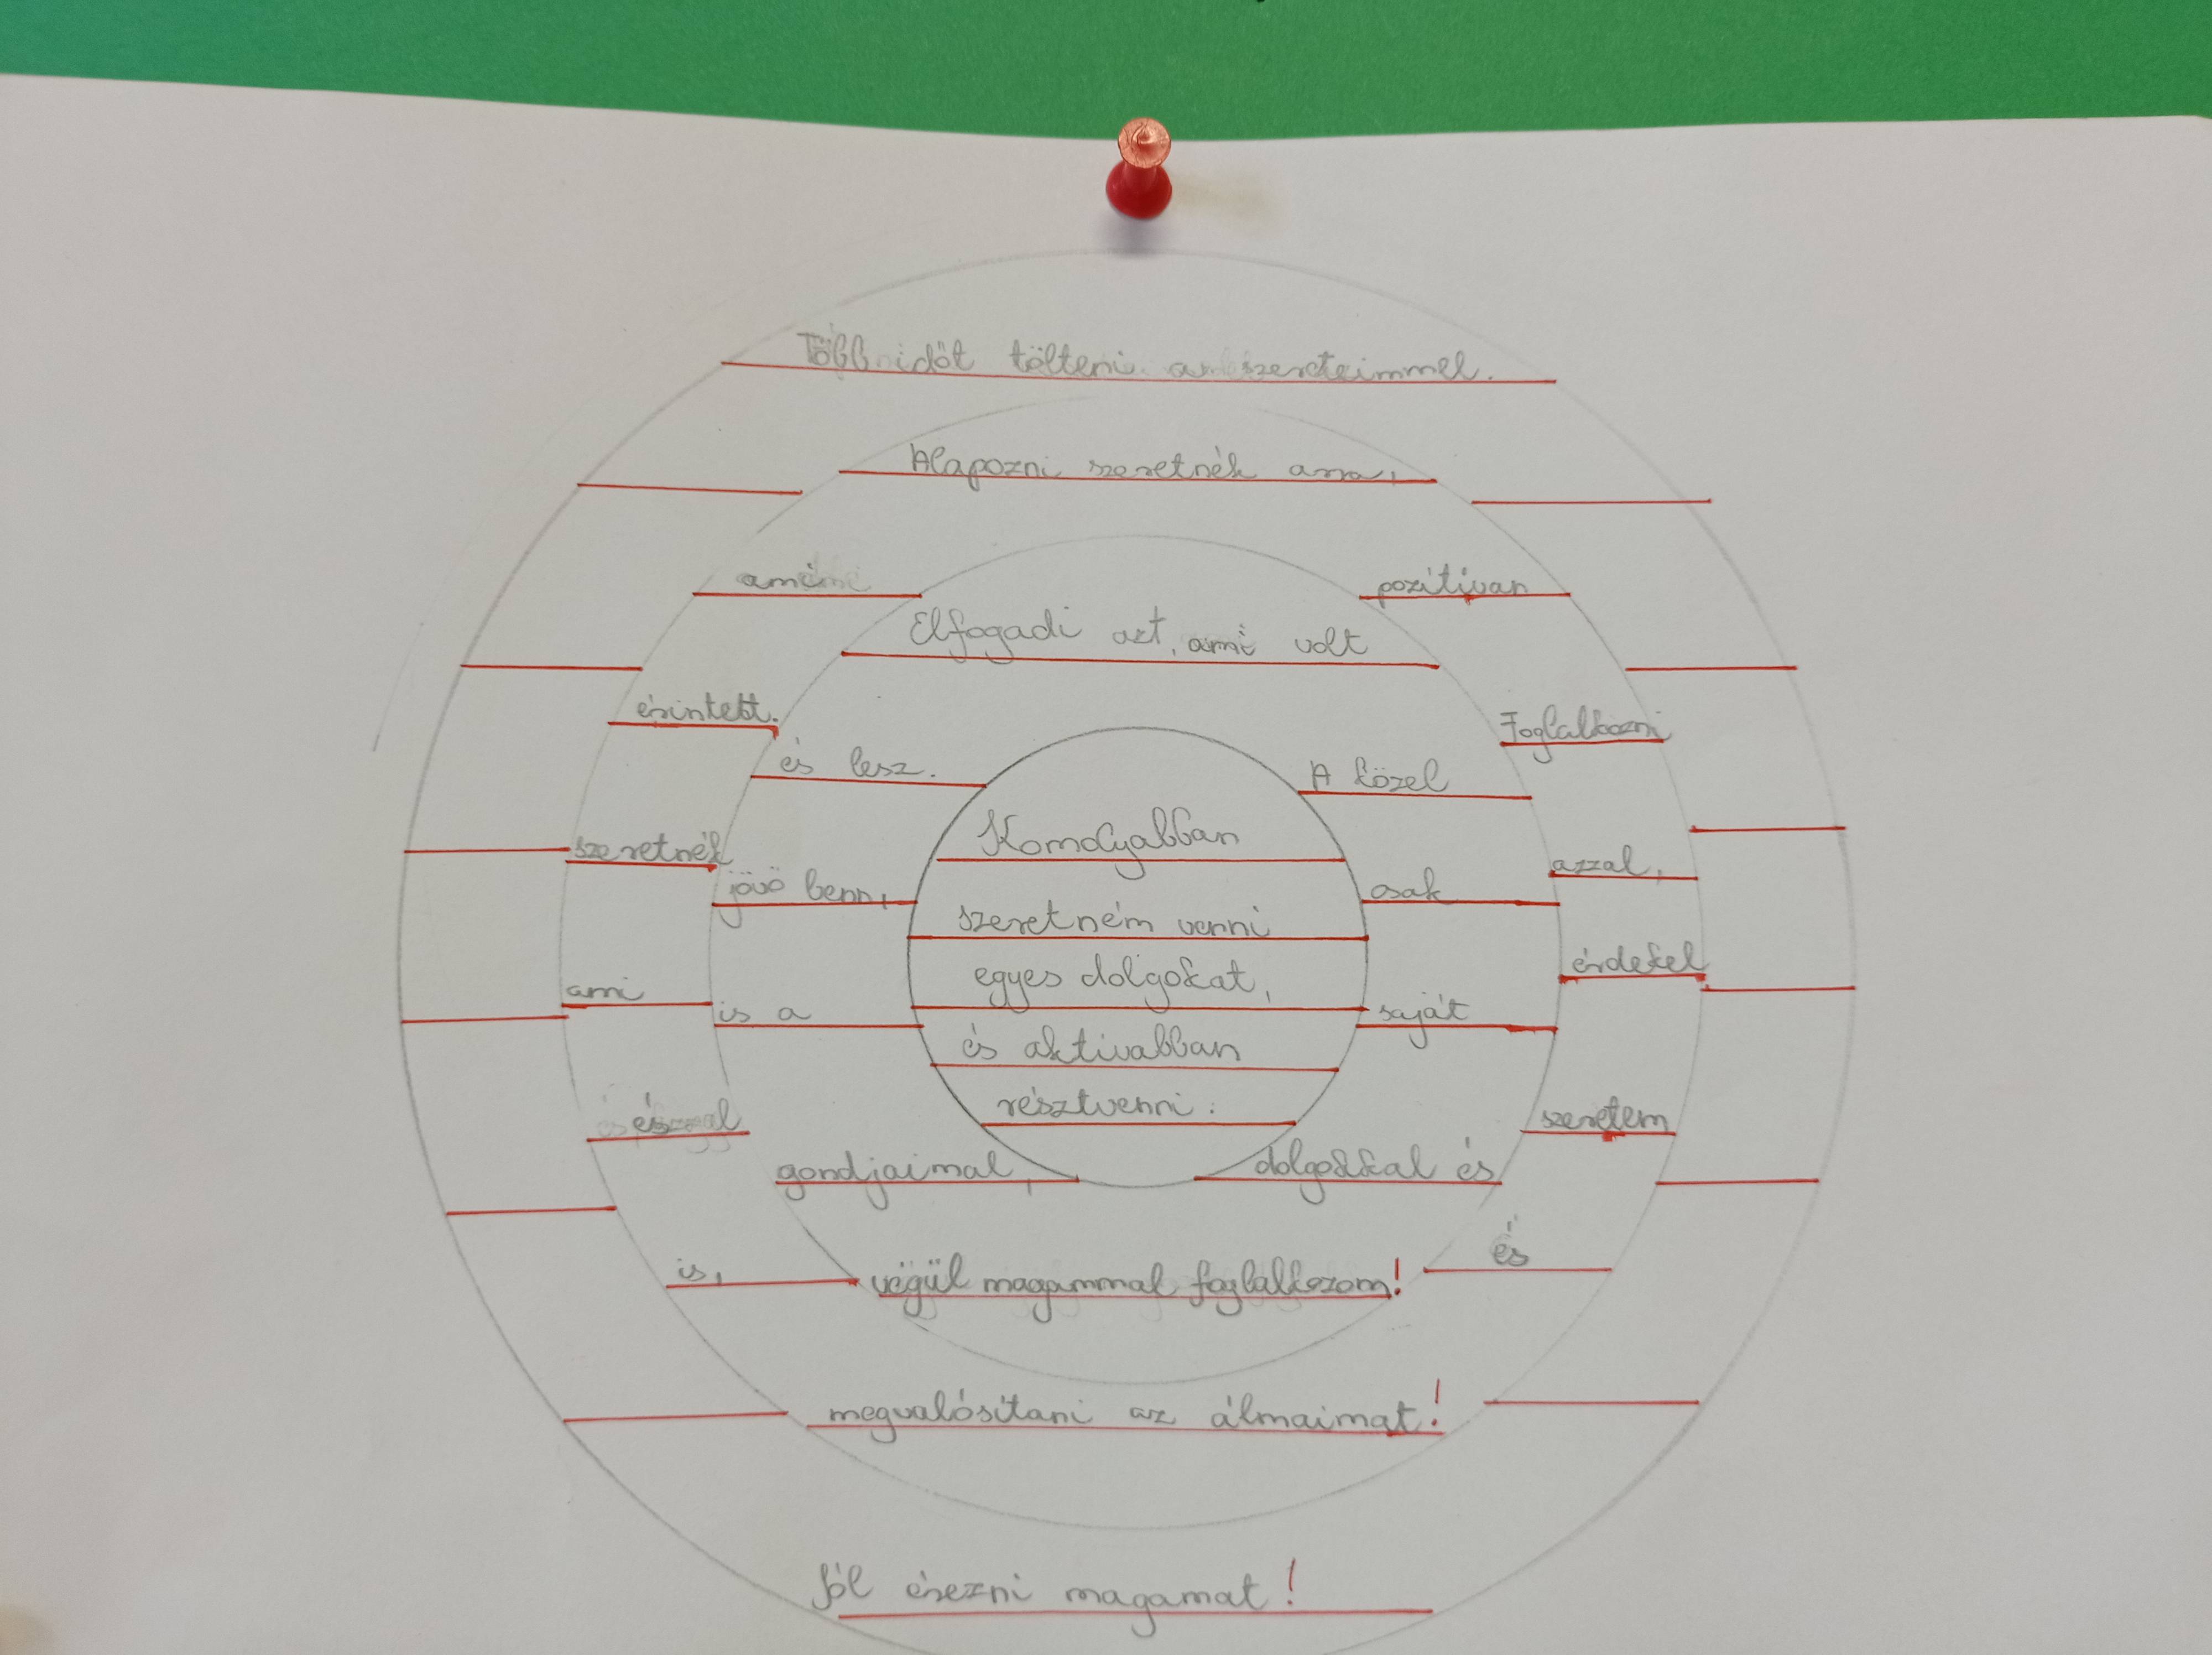 Több időt tölteni a szereteimmel.
Alapozni szeretnék arra,
ami pozitívan
érintett. Foglalkozni
szeretnék azzal,
ami érdekel
és szeretem
is, és
megvalósítani az álmaimat!
Elfogadi azt, ami volt
és lesz. A közel
jövö benn, csak
is a saját
gondjaimal, dolgokkal és
végül magammal foglalkozom!
Komolyabban
szeretném venni
egyes dolgokat,
és aktivabban
résztvenni.
Jól érezni magamat!